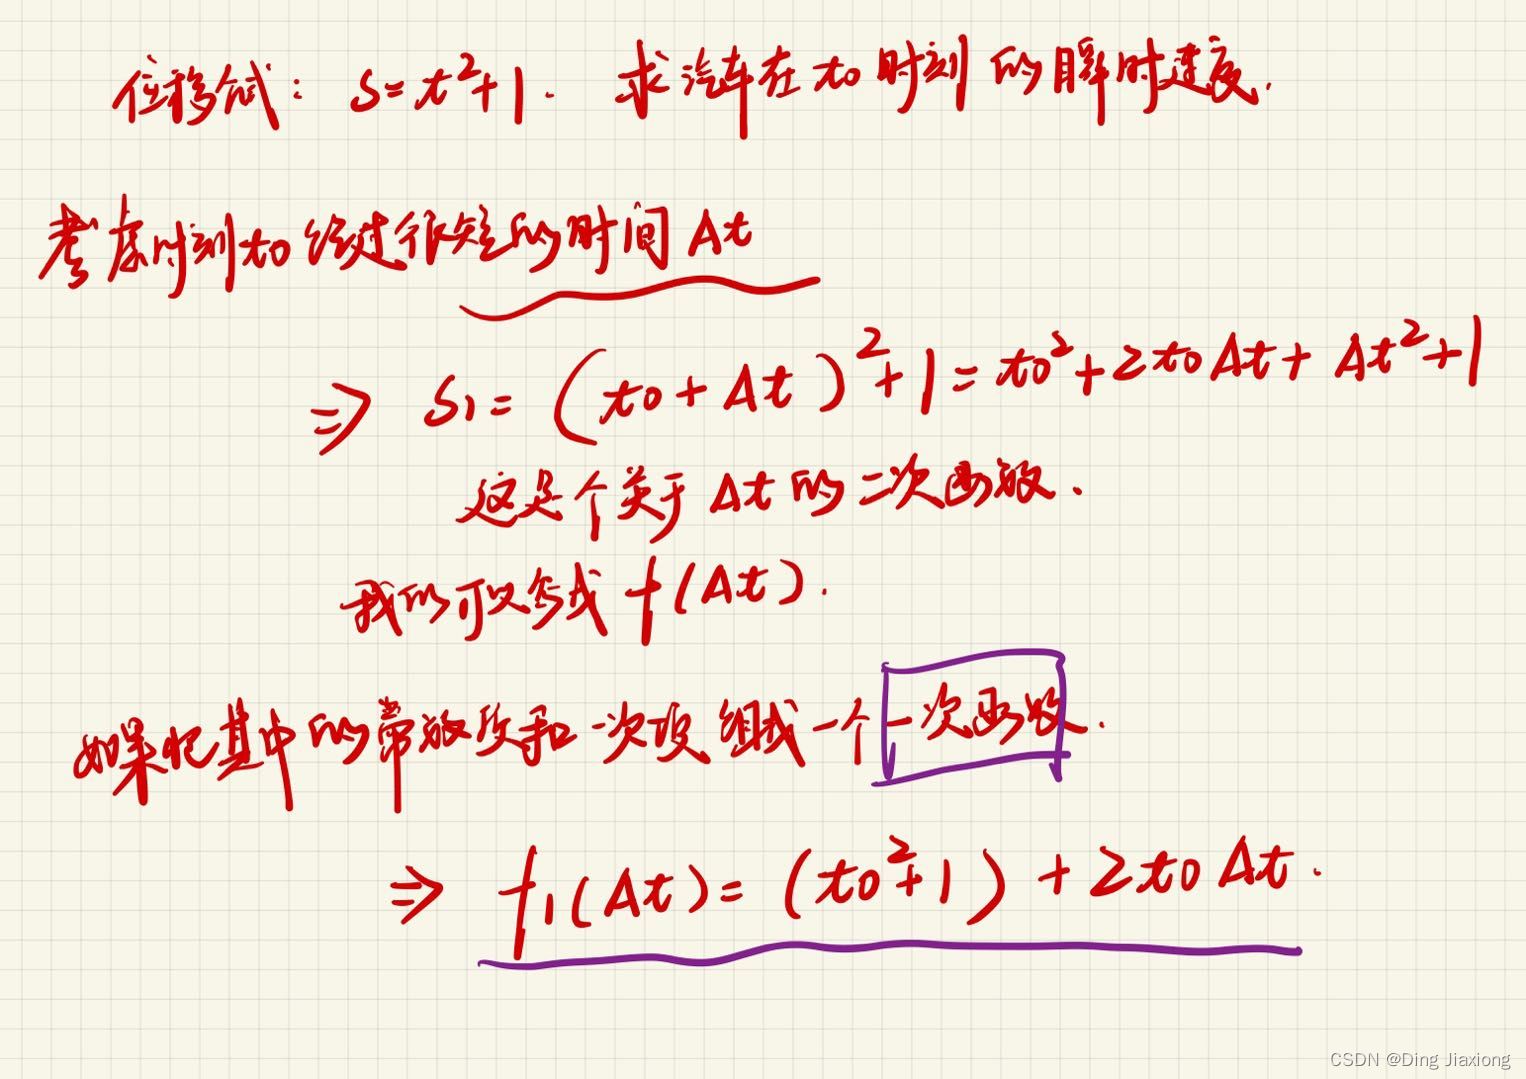 位移试: S=t²+1. 求汽车在t0时刻的瞬时速度.
考虑时刻t0经过很短的时间Δt
⇒ S1=(t0+Δt)²+1=t0²+2t0Δt+Δt²+1
这是个关于Δt的二次函数.
我们可以写成f(Δt).
如果把其中的常数项和一次项组成一个一次函数.
⇒ f1(Δt)=(t0²+1)+2t0Δt.
CSDN @Ding Jiaxiong